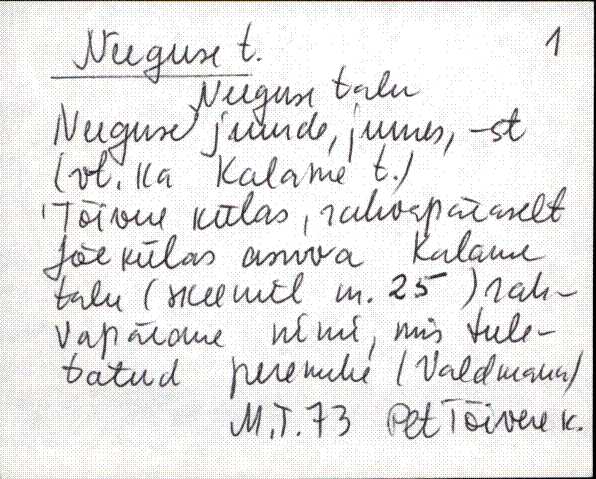 Neeguse t. 1
Neeguse talu
Neeguse juurde, juures, -st
(vt. ka Kalame t.)
Tõivere külas, rahvapäraselt
Jõekülas asuva Kalame
talu (skeemil nr. 25) rah-
vapärane nimi, mis tule-
tatud peremehe (Valdmann)
M.T. 73 Pet Tõivere k.